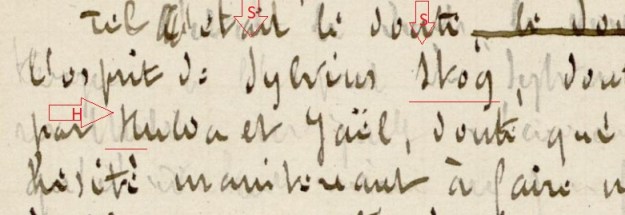 Tel était le doute le dou
l'esprit de Sylvius Hog, dout
par Hulda et Joël, doute que
hésité maintenant à faire
S
S
H